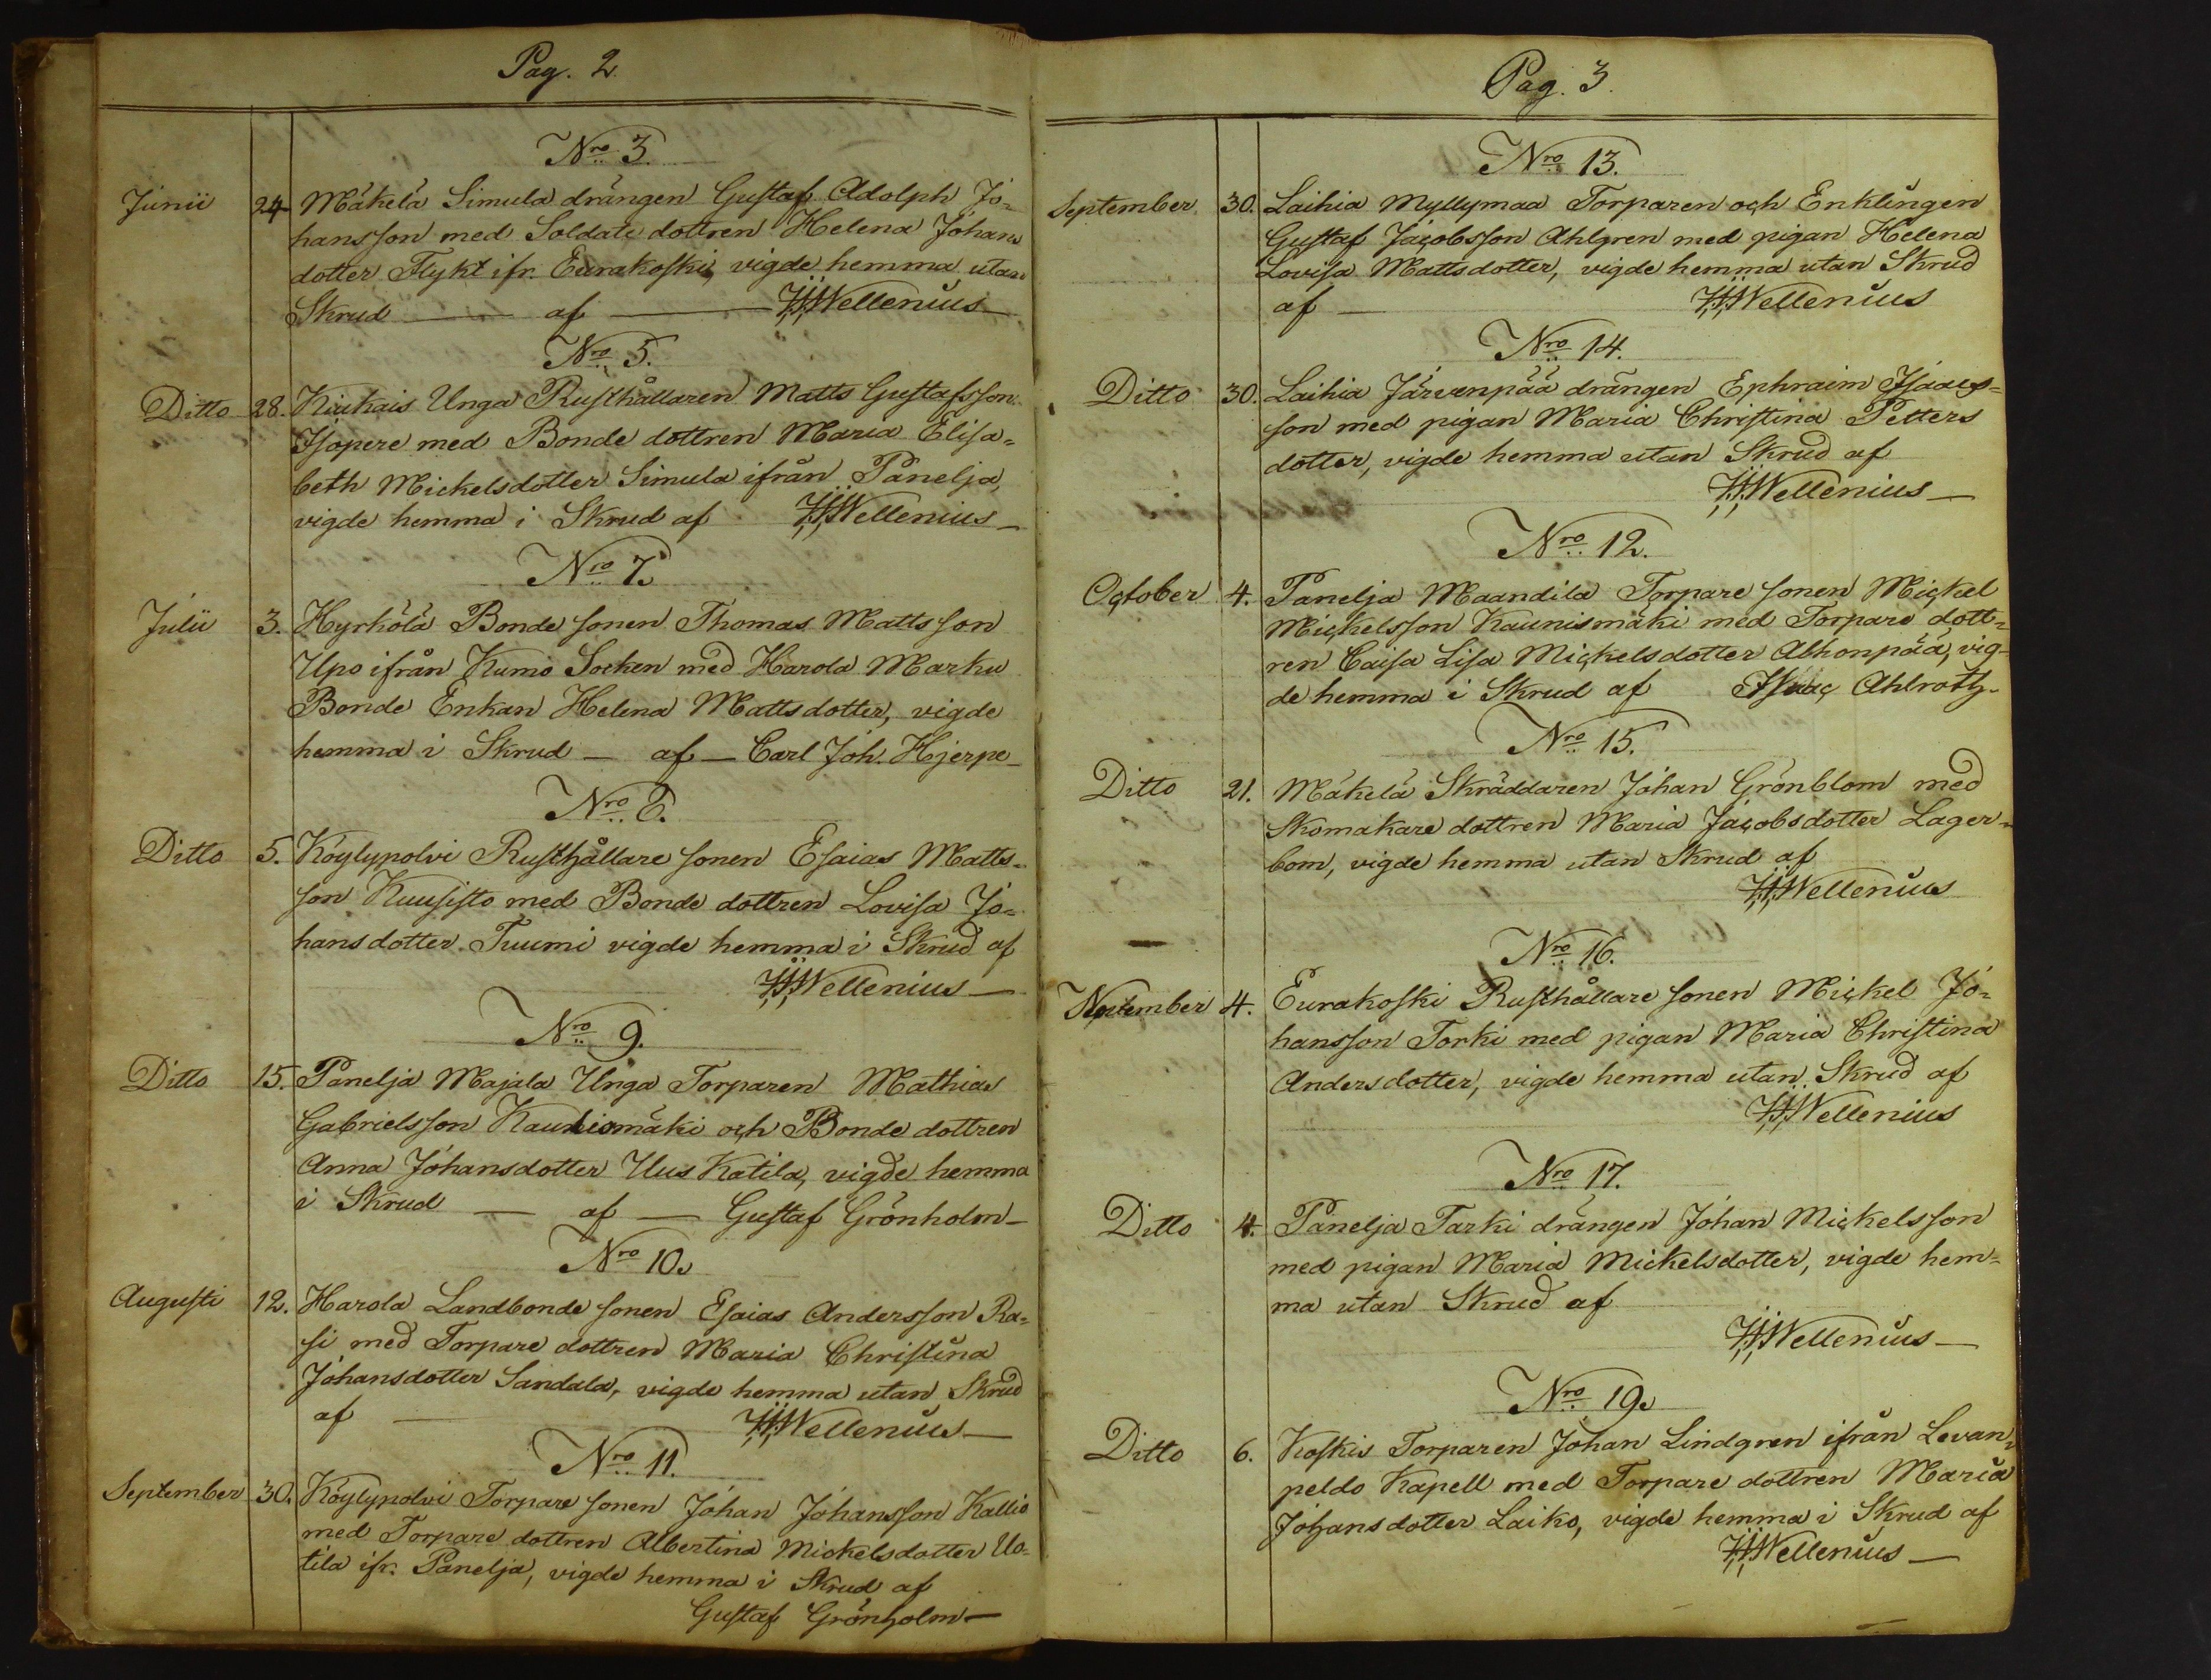 Pag. 2.
Nro 3.
Junii 24 Mäkelä Simula drängen Gustaf Adolph Jo=
hansson med Soldate dottren Helena Johans
dotter Flykt ifr. Eurakoski, vigde hemma utan
Skrud — af — Wellenius
Nro 5.
Ditto 28. Kiukais Unga Rusthållaren Matts Gustafsson
Isopere med Bonde dottren Maria Elisa=
beth Mickelsdotter Simula ifrån Panelja,
vigde hemma i Skrud af Wellenius —
Nro 7.
Julii 3. Hyrhölä Bonde sonen Thomas Mattsson
Upo ifrån Kumo Socken med Harola Marku
Bonde Enkan Helena Mattsdotter, vigde
hemma i Skrud — af — Carl Joh. Hjerpe —
Nro 8.
Ditto 5. Köylypolvi Rusthållare sonen Esaias Matts=
son Kuusisto med Bonde dottren Lovisa Jo=
hansdotter Tuumi vigde hemma i Skrud af
Wellenius —
Nro 9.
Ditto 15. Panelja Majala Unga Torparen Mathias
Gabrielsson Kaunismäki och Bonde dottren
Anna Johansdotter Uus Katila, vigde hemma
i Skrud — af — Gustaf Grönholm —
Nro 10.
Augusti 12. Harola Landbonde sonen Esaias Andersson Ra=
si med Torpare dottren Maria Christina
Johansdotter Sandala, vigde hemma utan Skrud
af — Wellenius —
Nro 11.
September 30. Köylypolvi Torpare sonen Johan Johansson Kallio
med Torpare dottren Albertina Mickelsdotter Uo=
tila ifr. Panelja, vigde hemma i Skrud af
Gustaf Grönholm —
Pag. 3.
Nro 13.
September 30. Laihia Myllymaa Torparen och Enklingen
Gustaf Jacobsson Ahlgren med pigan Helena
Lovisa Mattsdotter, vigde hemma utan Skrud
af — Wellenius
Nro 14.
Ditto 30. Laihia Järvenpää drängen Ephraim Isaacs=
son med pigan Maria Christina Petters
dotter, vigde hemma utan Skrud af
Wellenius —
Nro 12.
October 4. Panelja Maandila Torpare sonen Mickel
Mickelsson Kaunismäki med Torpare dott=
ren Caisa Lisa Mickelsdotter Alhonpää, vig=
de hemma i Skrud af Isaac Ahlroth.
Nro 15.
Ditto 21. Mäkelä Skräddaren Johan Grönblom med
Skomakare dottren Maria Jacobsdotter Lager=
bom, vigde hemma utan Skrud af
Wellenius
Nro 16.
November 4. Eurakoski Rusthållare sonen Mickel Jo=
hansson Torki med pigan Maria Christina
Andersdotter, vigde hemma utan Skrud af
Wellenius
Nro 17.
Ditto 4. Panelja Tarki drängen Johan Mickelsson
med pigan Maria Mickelsdotter, vigde hem=
ma utan Skrud af
Wellenius —
Nro 19.
Ditto 6. Koskis Torparen Johan Lindgren ifrån Levan=
peldo Kapell med Torpare dottren Maria
Johansdotter Laiko, vigde hemma i Skrud af
Wellenius —